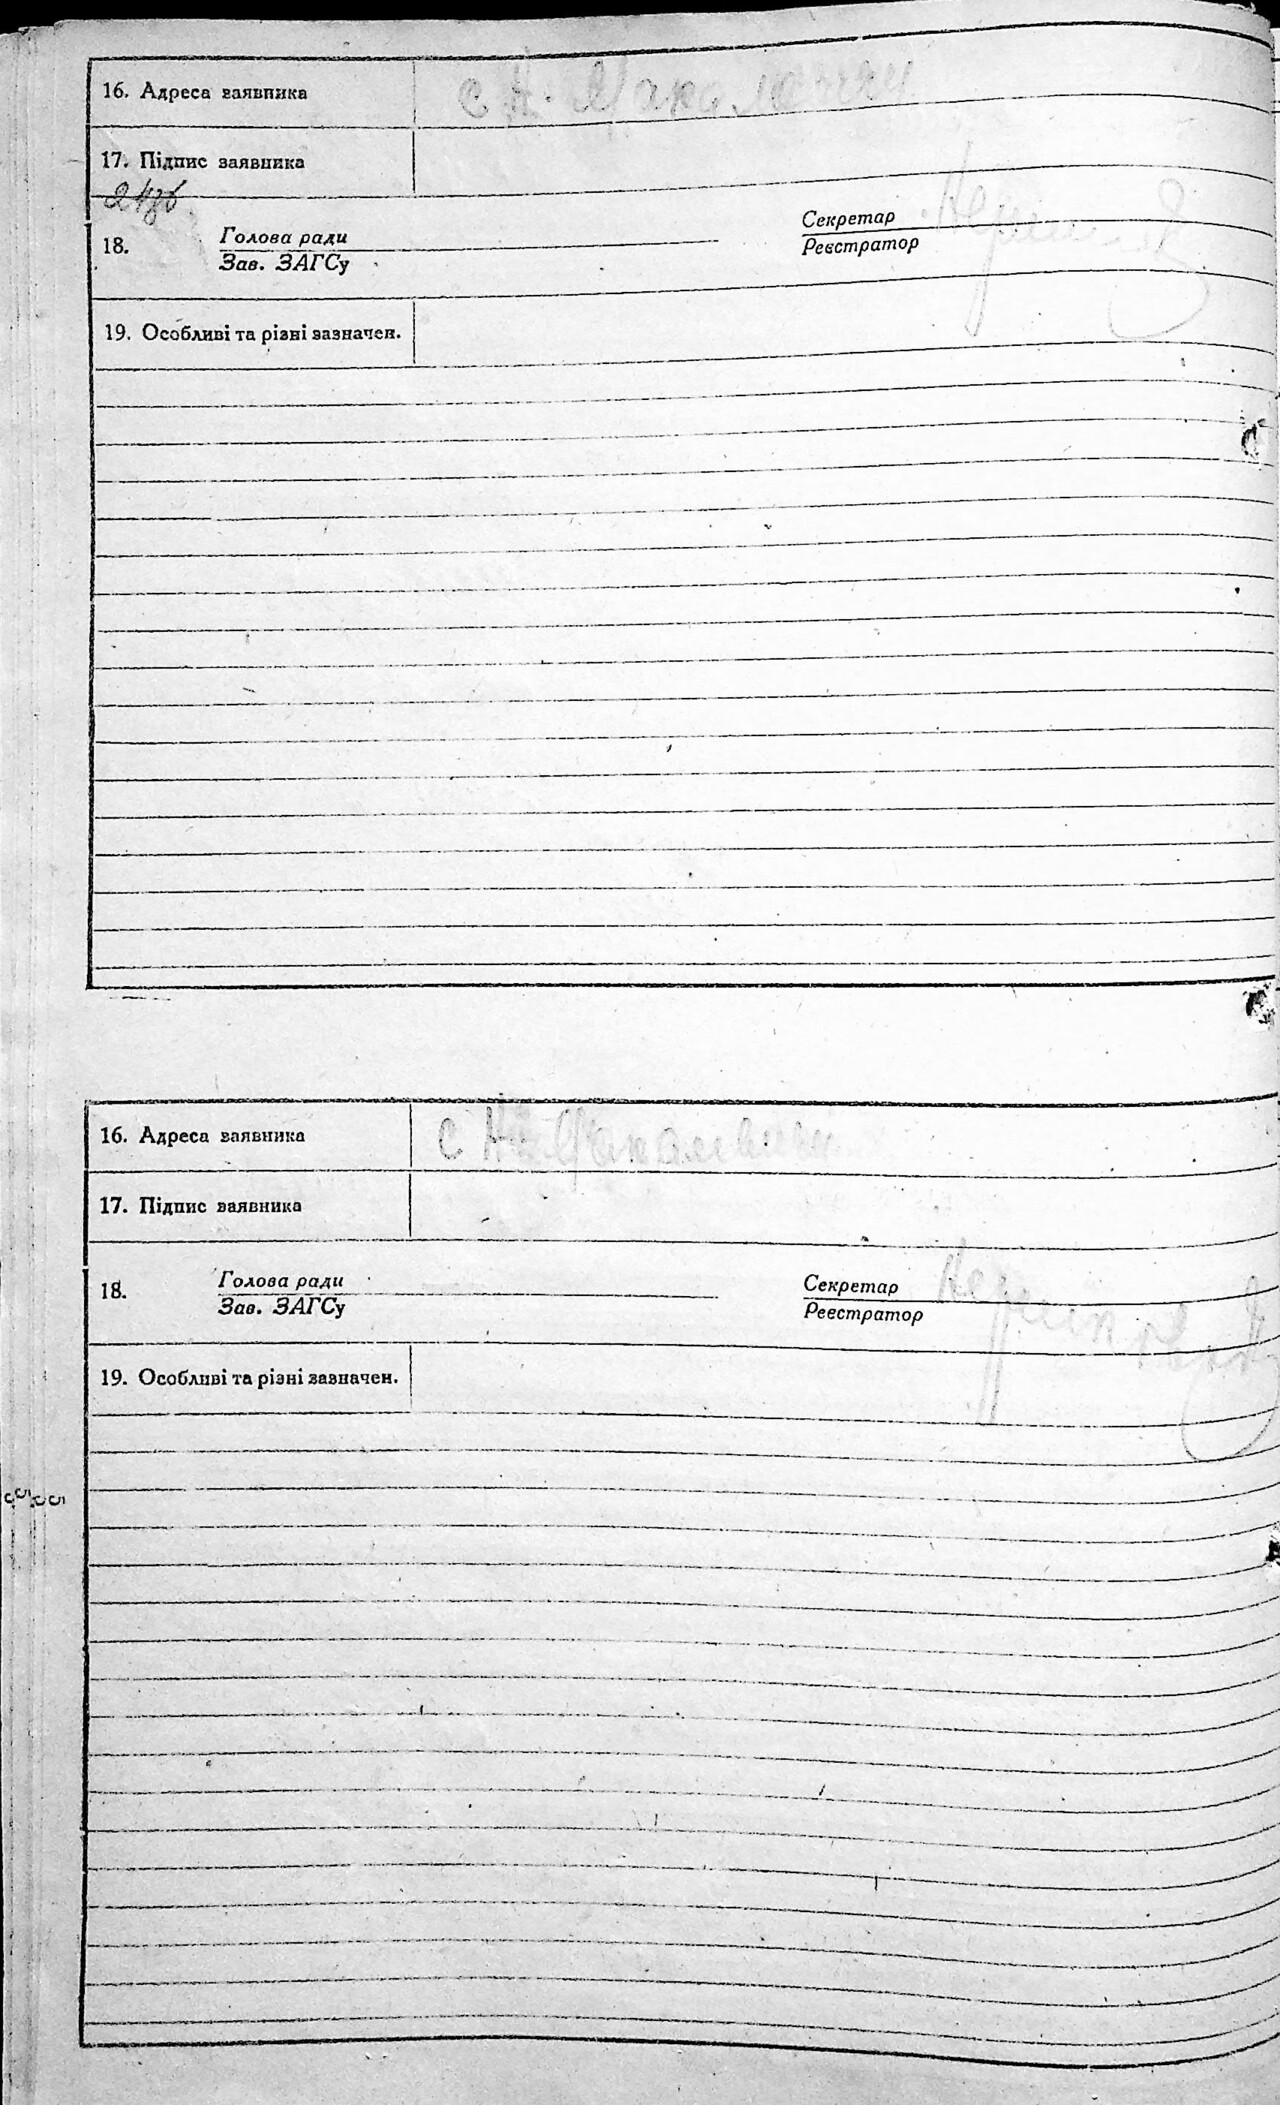 16. Адреса заявника с Н.
17. Підпис заявника
18. Голова ради Секретар
Зав. ЗАГСу Реєстратор
19. Особливі та різні зазначен.
16. Адреса заявника с Н.
17. Підпис заявника
18. Голова ради Секретар
Зав. ЗАГСу Реєстратор
19. Особливі та різні зазначен.